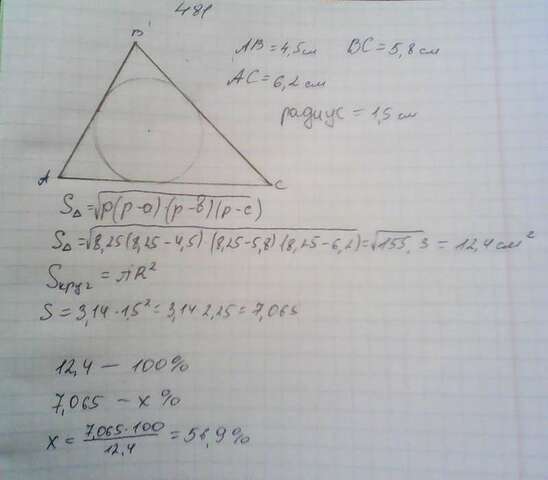 481
B
AB = 4,5 см BC = 5,8 см
AC = 6,2 см
радиус = 1,5 см
A
C
S△ = √p(p-a)(p-b)(p-c)
S△ = √8,25(8,25-4,5)(8,25-5,8)(8,25-6,2) = √155,3 = 12,4 см²
Sкруг = πR²
S = 3,14·1,5² = 3,14·2,25 = 7,065
12,4 — 100%
7,065 — x%
x = 7,065·100/12,4 = 56,9%